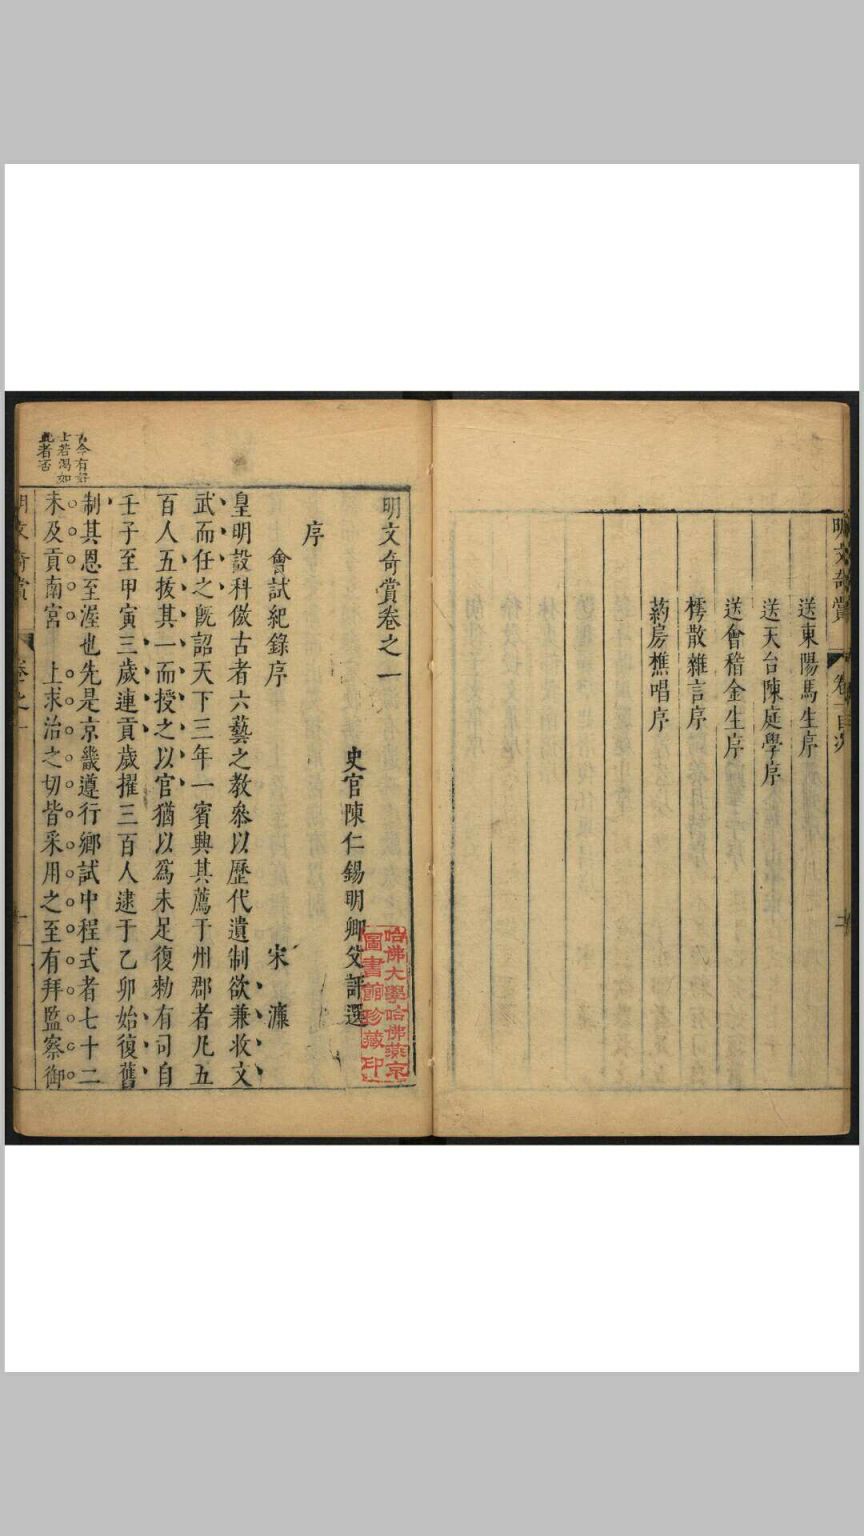 送東陽馬生序
送天台陳庭學序
送會稽金生序
樗散雜言序
葯房樵唱序
明文奇賞卷之一
史官陳仁錫明卿父評選
序
會試紀錄序
宋濂
皇明設科倣古者六藝之教叅以歷代遺制欲兼收文
武而任之旣詔天下三年一賓興其薦于州郡者凡五
百人五拔其一而授之以官猶以爲未足復勑有司自
壬子至甲寅三歲連貢歲擢三百人逮于乙卯始復舊
制其恩至渥也先是京畿遵行鄉試中程式者七十二
未及貢南宮 上求治之切皆采用之至有拜監察御
古今有好
士若渴如
此者否
明文奇賞 卷之一
哈佛大學哈佛燕京
圖書館珍藏印